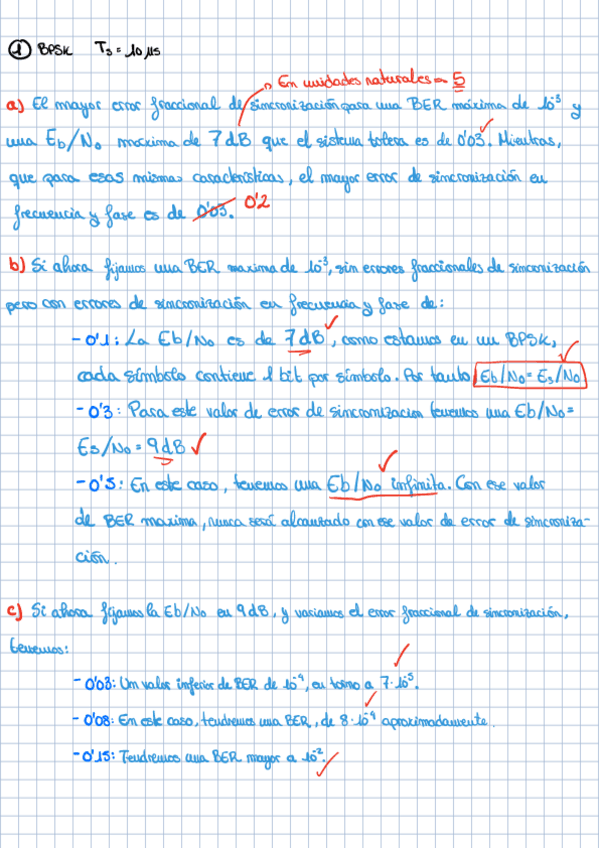 ① BPSK Ts = 10 μs
→ En unidades naturales = 5
a) El mayor error fraccional de sincronización para una BER máxima de 10⁻³ y
una Eb/No máxima de 7dB que el sistema tolera es de 0'03. ✓ Mientras,
que para esas mismas características, el mayor error de sincronización en
frecuencia y fase es de 0'03. 0'2
b) Si ahora fijamos una BER maxima de 10⁻³, sin errores fraccionales de sincronización
pero con errores de sincronización en frecuencia y fase de:
- 0'1: La Eb/No es de 7dB ✓, como estamos en un BPSK,
cada símbolo contiene 1 bit por símbolo. Por tanto Eb/No = Es/No ✓
- 0'3: Para este valor de error de sincronizacion tenemos una Eb/No =
Es/No = 9dB ✓
- 0'5: En este caso, tenemos una Eb/No infinita. ✓ Con ese valor
de BER maxima, nunca será alcanzado con ese valor de error de sincroniza-
ción.
c) Si ahora fijamos la Eb/No en 9dB, y variamos el error fraccional de sincronización,
tenemos:
- 0'03: Um valor inferior de BER de 10⁻⁴, en torno a 7·10⁻⁵. ✓
- 0'08: En este caso, tendremos una BER, de 8·10⁻⁴ aproximadamente. ✓
- 0'15: Tendremos una BER mayor a 10⁻². ✓